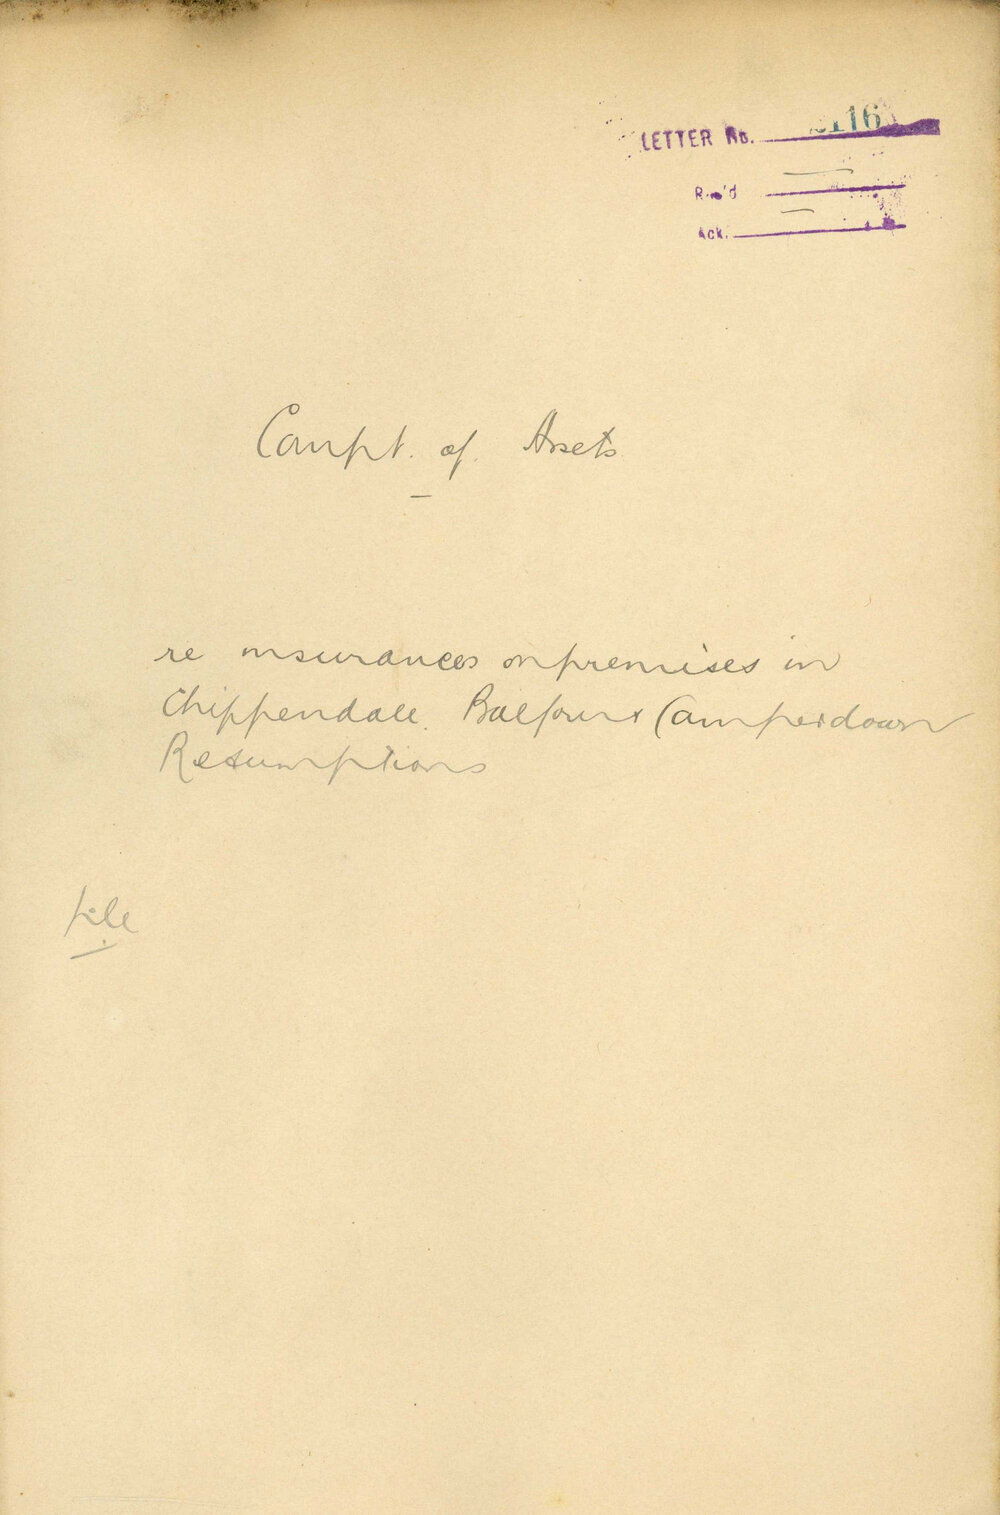 LETTER No.
Rec'd
Ack.
Compt. of Assets
re insurances on premises in
Chippendale, Balfour & Camperdown
Resumptions
file